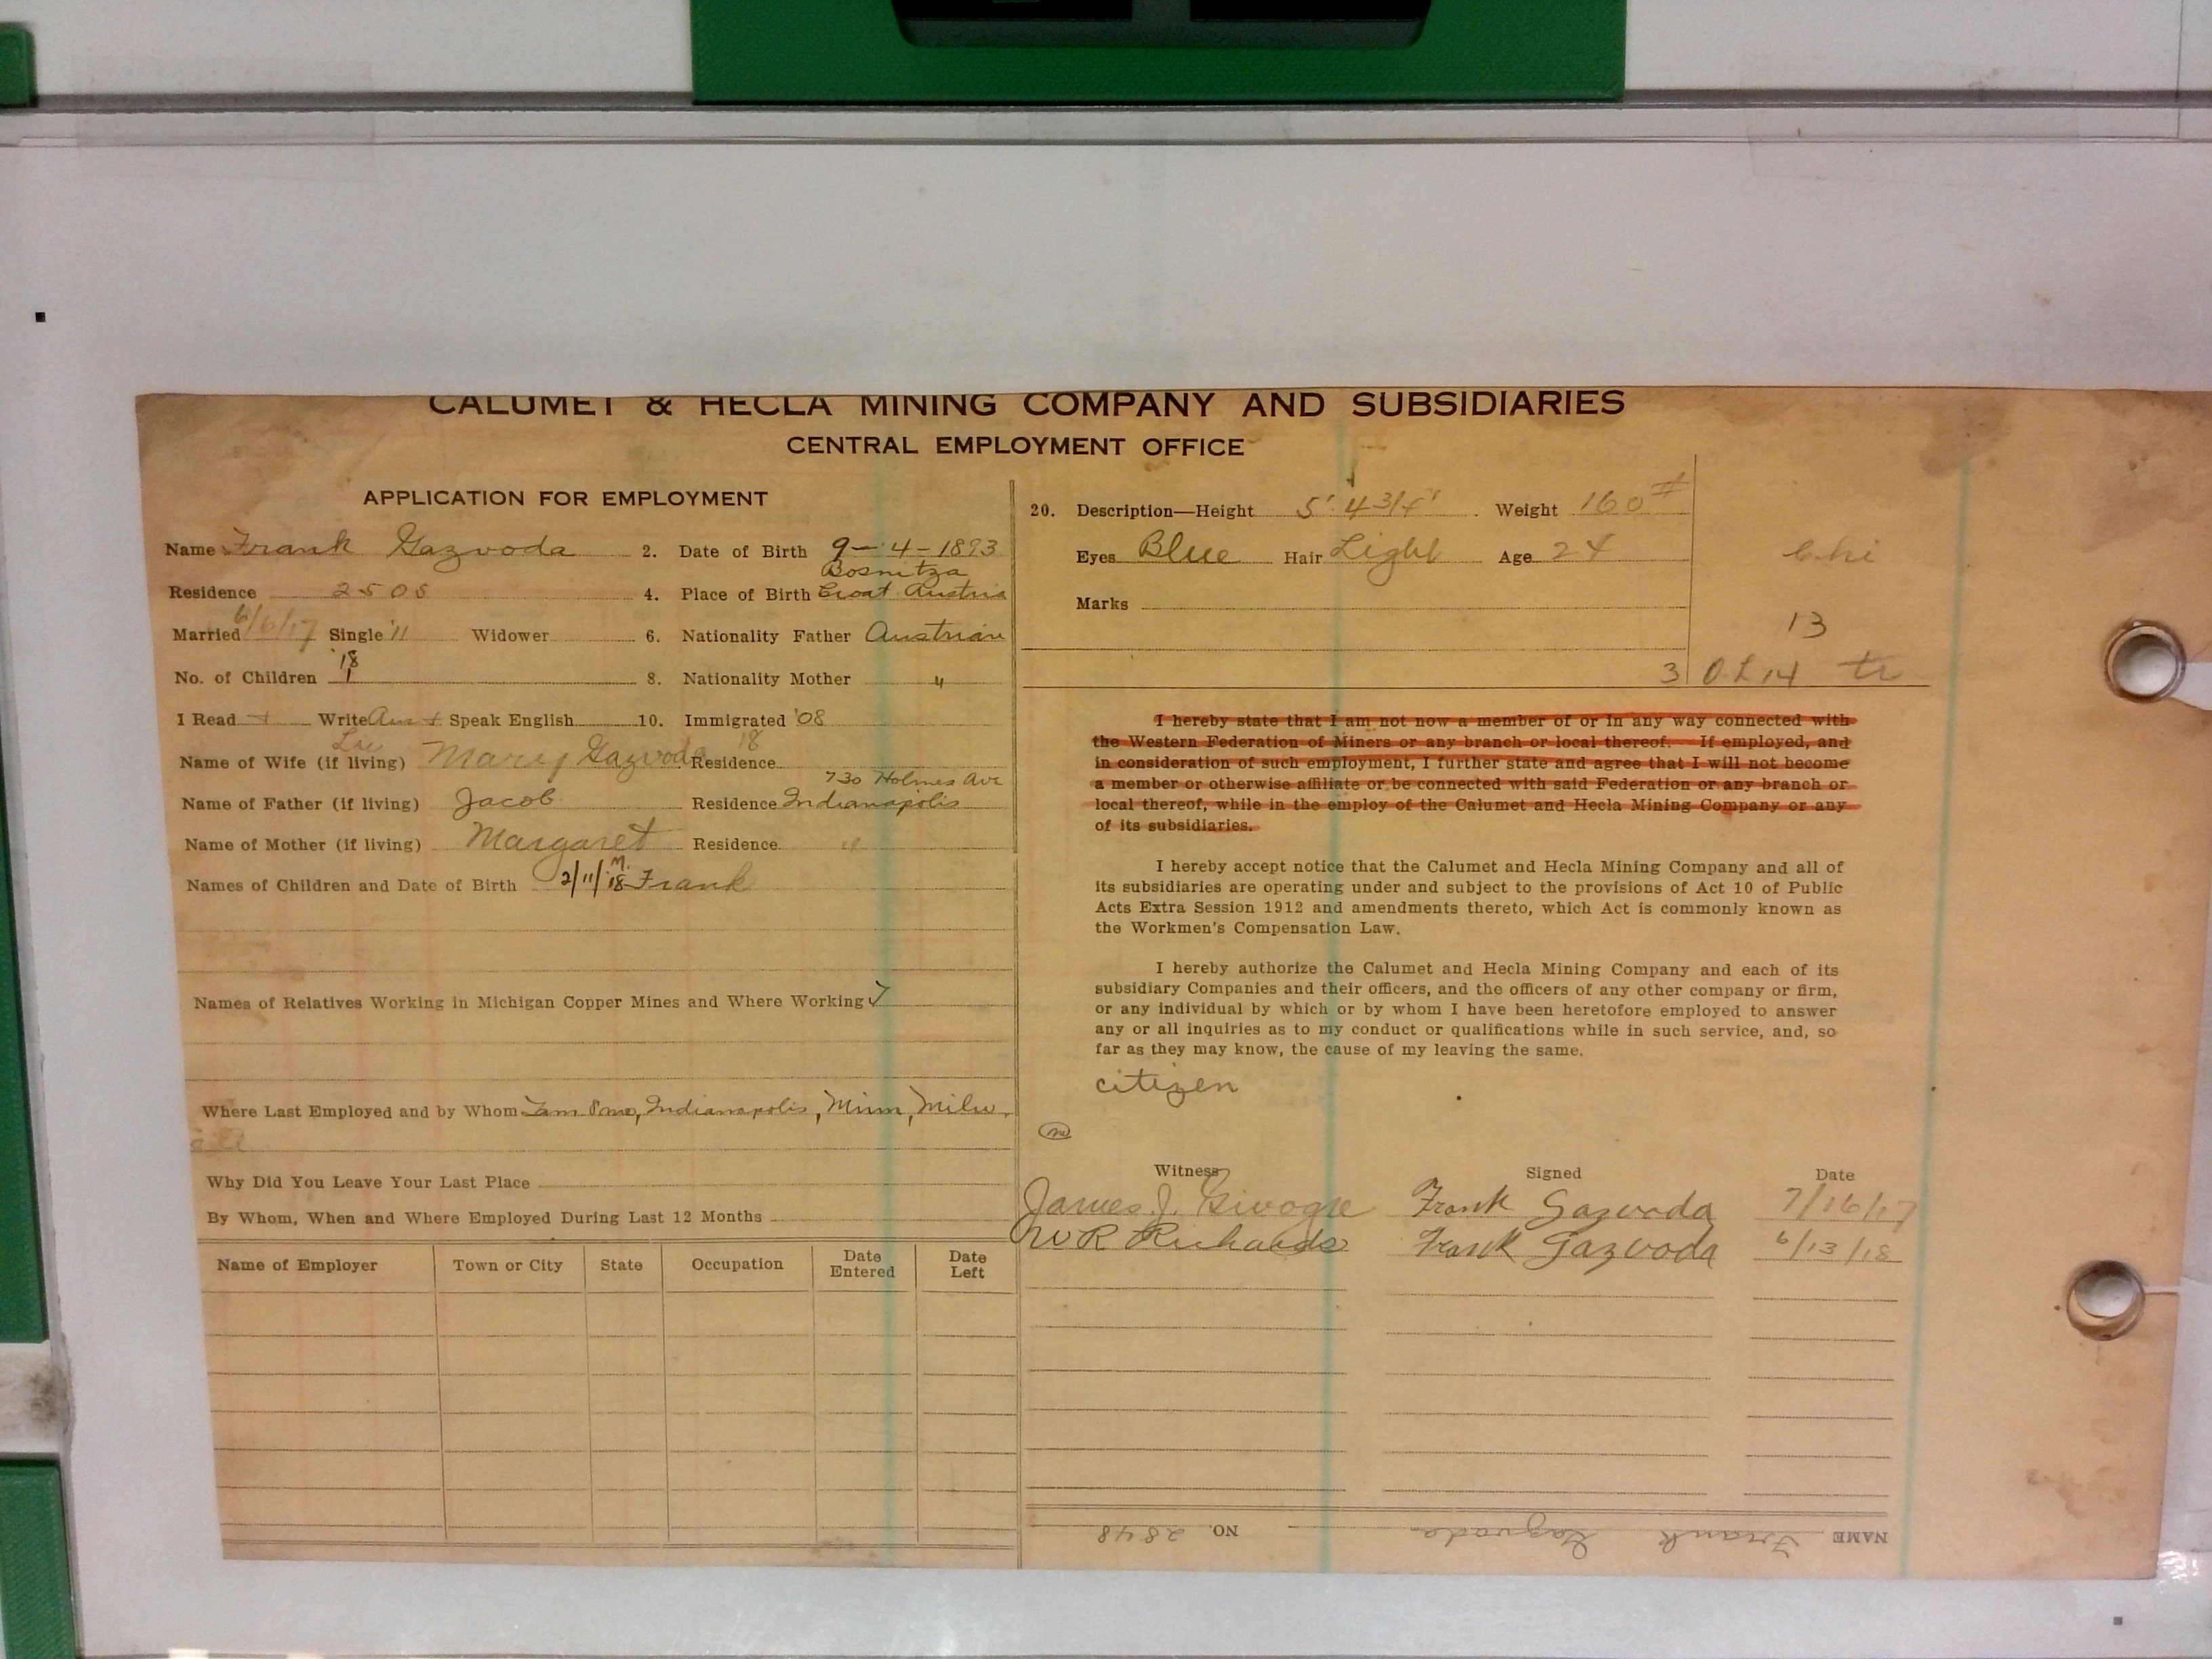 CALUMET & HECLA MINING COMPANY AND SUBSIDIARIES
CENTRAL EMPLOYMENT OFFICE
APPLICATION FOR EMPLOYMENT
Name Frank Gazvoda 2. Date of Birth 9-4-1893
Bosnitza
Residence 2505 4. Place of Birth Croat. Austria
Married 6/6/17 Single '11 Widower 6. Nationality Father Austrian
'18
No. of Children 1 8. Nationality Mother "
1 Read + Write Aus + Speak English 10. Immigrated '08
Name of Wife (if living) Mary Gazvoda Residence '18
730 Holmes Ave
Name of Father (if living) Jacob Residence Indianapolis
Name of Mother (if living) Margaret Residence "
Names of Children and Date of Birth 2/11/18 M. Frank
Names of Relatives Working in Michigan Copper Mines and Where Working
Where Last Employed and by Whom Tam 8 mo, Indianapolis, Minn, Milw.
Why Did You Leave Your Last Place
By Whom, When and Where Employed During Last 12 Months
Name of Employer Town or City State Occupation Date Entered Date Left
20. Description—Height 5' 4 3/4" Weight 160#
Eyes Blue Hair Light Age 24
Marks
Chi
13
3 O.L 14 tr
I hereby state that I am not now a member of or in any way connected with
the Western Federation of Miners or any branch or local thereof. If employed, and
in consideration of such employment, I further state and agree that I will not become
a member or otherwise affiliate or be connected with said Federation or any branch or
local thereof, while in the employ of the Calumet and Hecla Mining Company or any
of its subsidiaries.
I hereby accept notice that the Calumet and Hecla Mining Company and all of
its subsidiaries are operating under and subject to the provisions of Act 10 of Public
Acts Extra Session 1912 and amendments thereto, which Act is commonly known as
the Workmen's Compensation Law.
I hereby authorize the Calumet and Hecla Mining Company and each of its
subsidiary Companies and their officers, and the officers of any other company or firm,
or any individual by which or by whom I have been heretofore employed to answer
any or all inquiries as to my conduct or qualifications while in such service, and, so
far as they may know, the cause of my leaving the same.
citizen
Witness Signed Date
James J. Frank Gazvoda 7/16/17
W R Richards Frank Gazvoda 6/13/18
NAME Frank Gazvoda NO. 2848